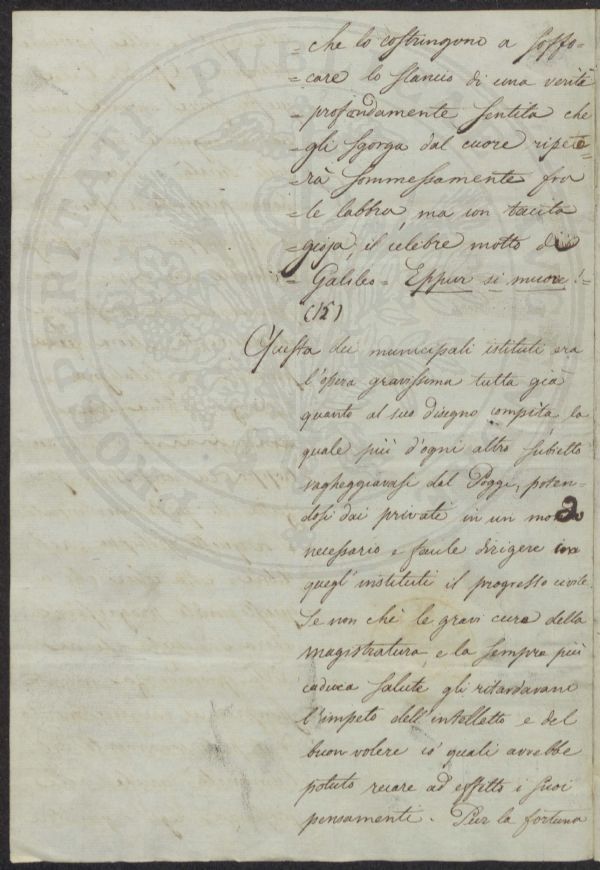 = che lo costringono a soffo=
= care lo slancio di una verità
= profondamente sentita che
= gli sgorga dal cuore ripete=
= rà sommessamente fra
= le labbra, ma con tacita
= gioja, il celebre motto di
= Galileo = Eppur si muove! =
(12)
Questa dei municipali istituti era
l'opera gravissima tutta già
quanto al suo disegno compita, la
quale più d'ogni altro subietto
vagheggiavasi dal Poggi, poten-
dosi dai privati in un modo
necessario e facile dirigere con
quegl'instituti il progresso civile.
Se non chè le gravi cure della
magistratura, e la sempre più
caduca salute gli ritardavano
l'impeto dell'intelletto e del
buon volere co' quali avrebbe
potuto recare ad effetto i suoi
pensamenti. Per la fortuna
PROSPERITATI PUBLICAE